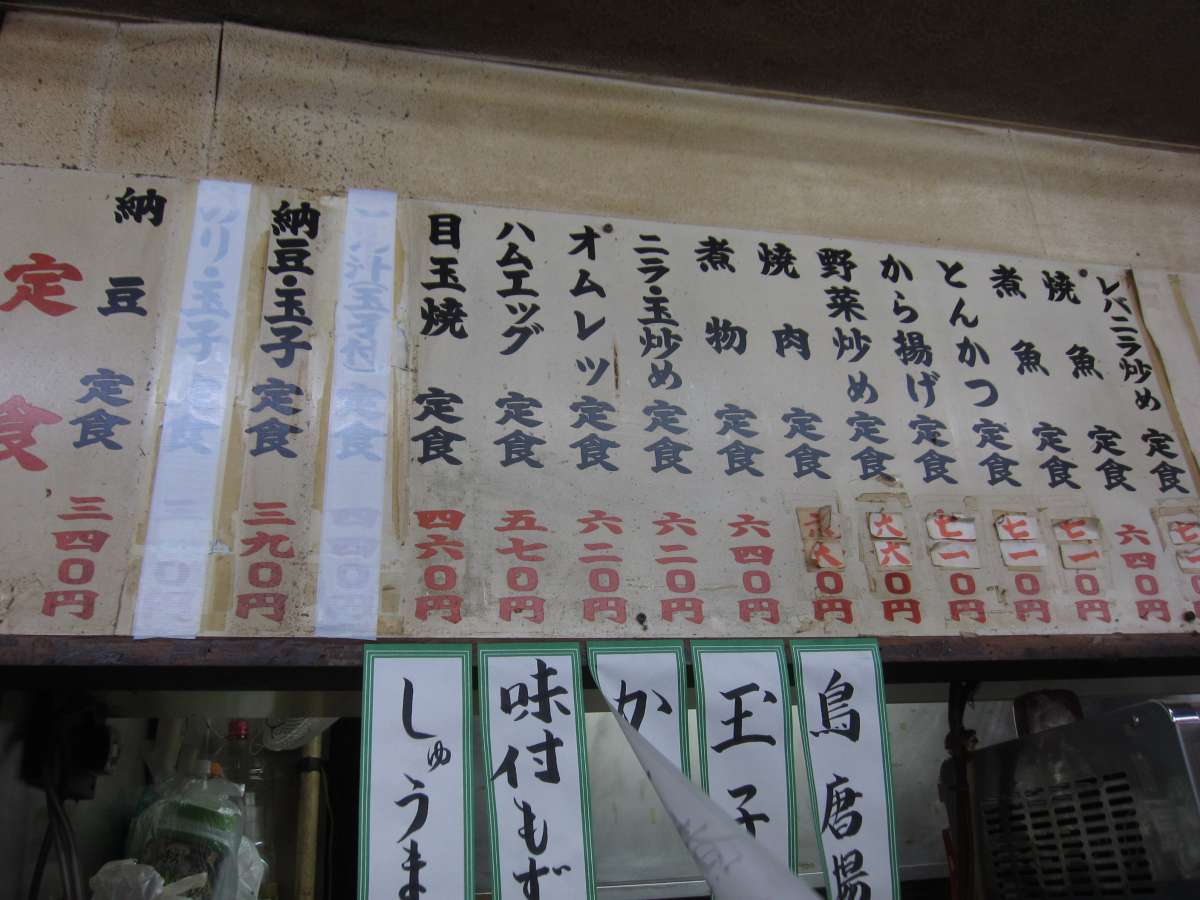 レバニラ炒め定食 七一
焼魚定食 六四0円
煮魚定食 七一0円
とんかつ定食 七一0円
から揚げ定食 七一0円
野菜炒め定食 六六0円
焼肉定食 0円
煮物定食 六四0円
ニラ・玉炒め定食 六二0円
オムレツ定食 六二0円
ハムエッグ定食 五七0円
目玉焼定食 四六0円
汁玉子付定食 四四0円
納豆・玉子定食 三九0円
リ・玉子定食
納豆定食 三四0円
定食
鳥唐揚
玉子
か
味付もず
しゅうま